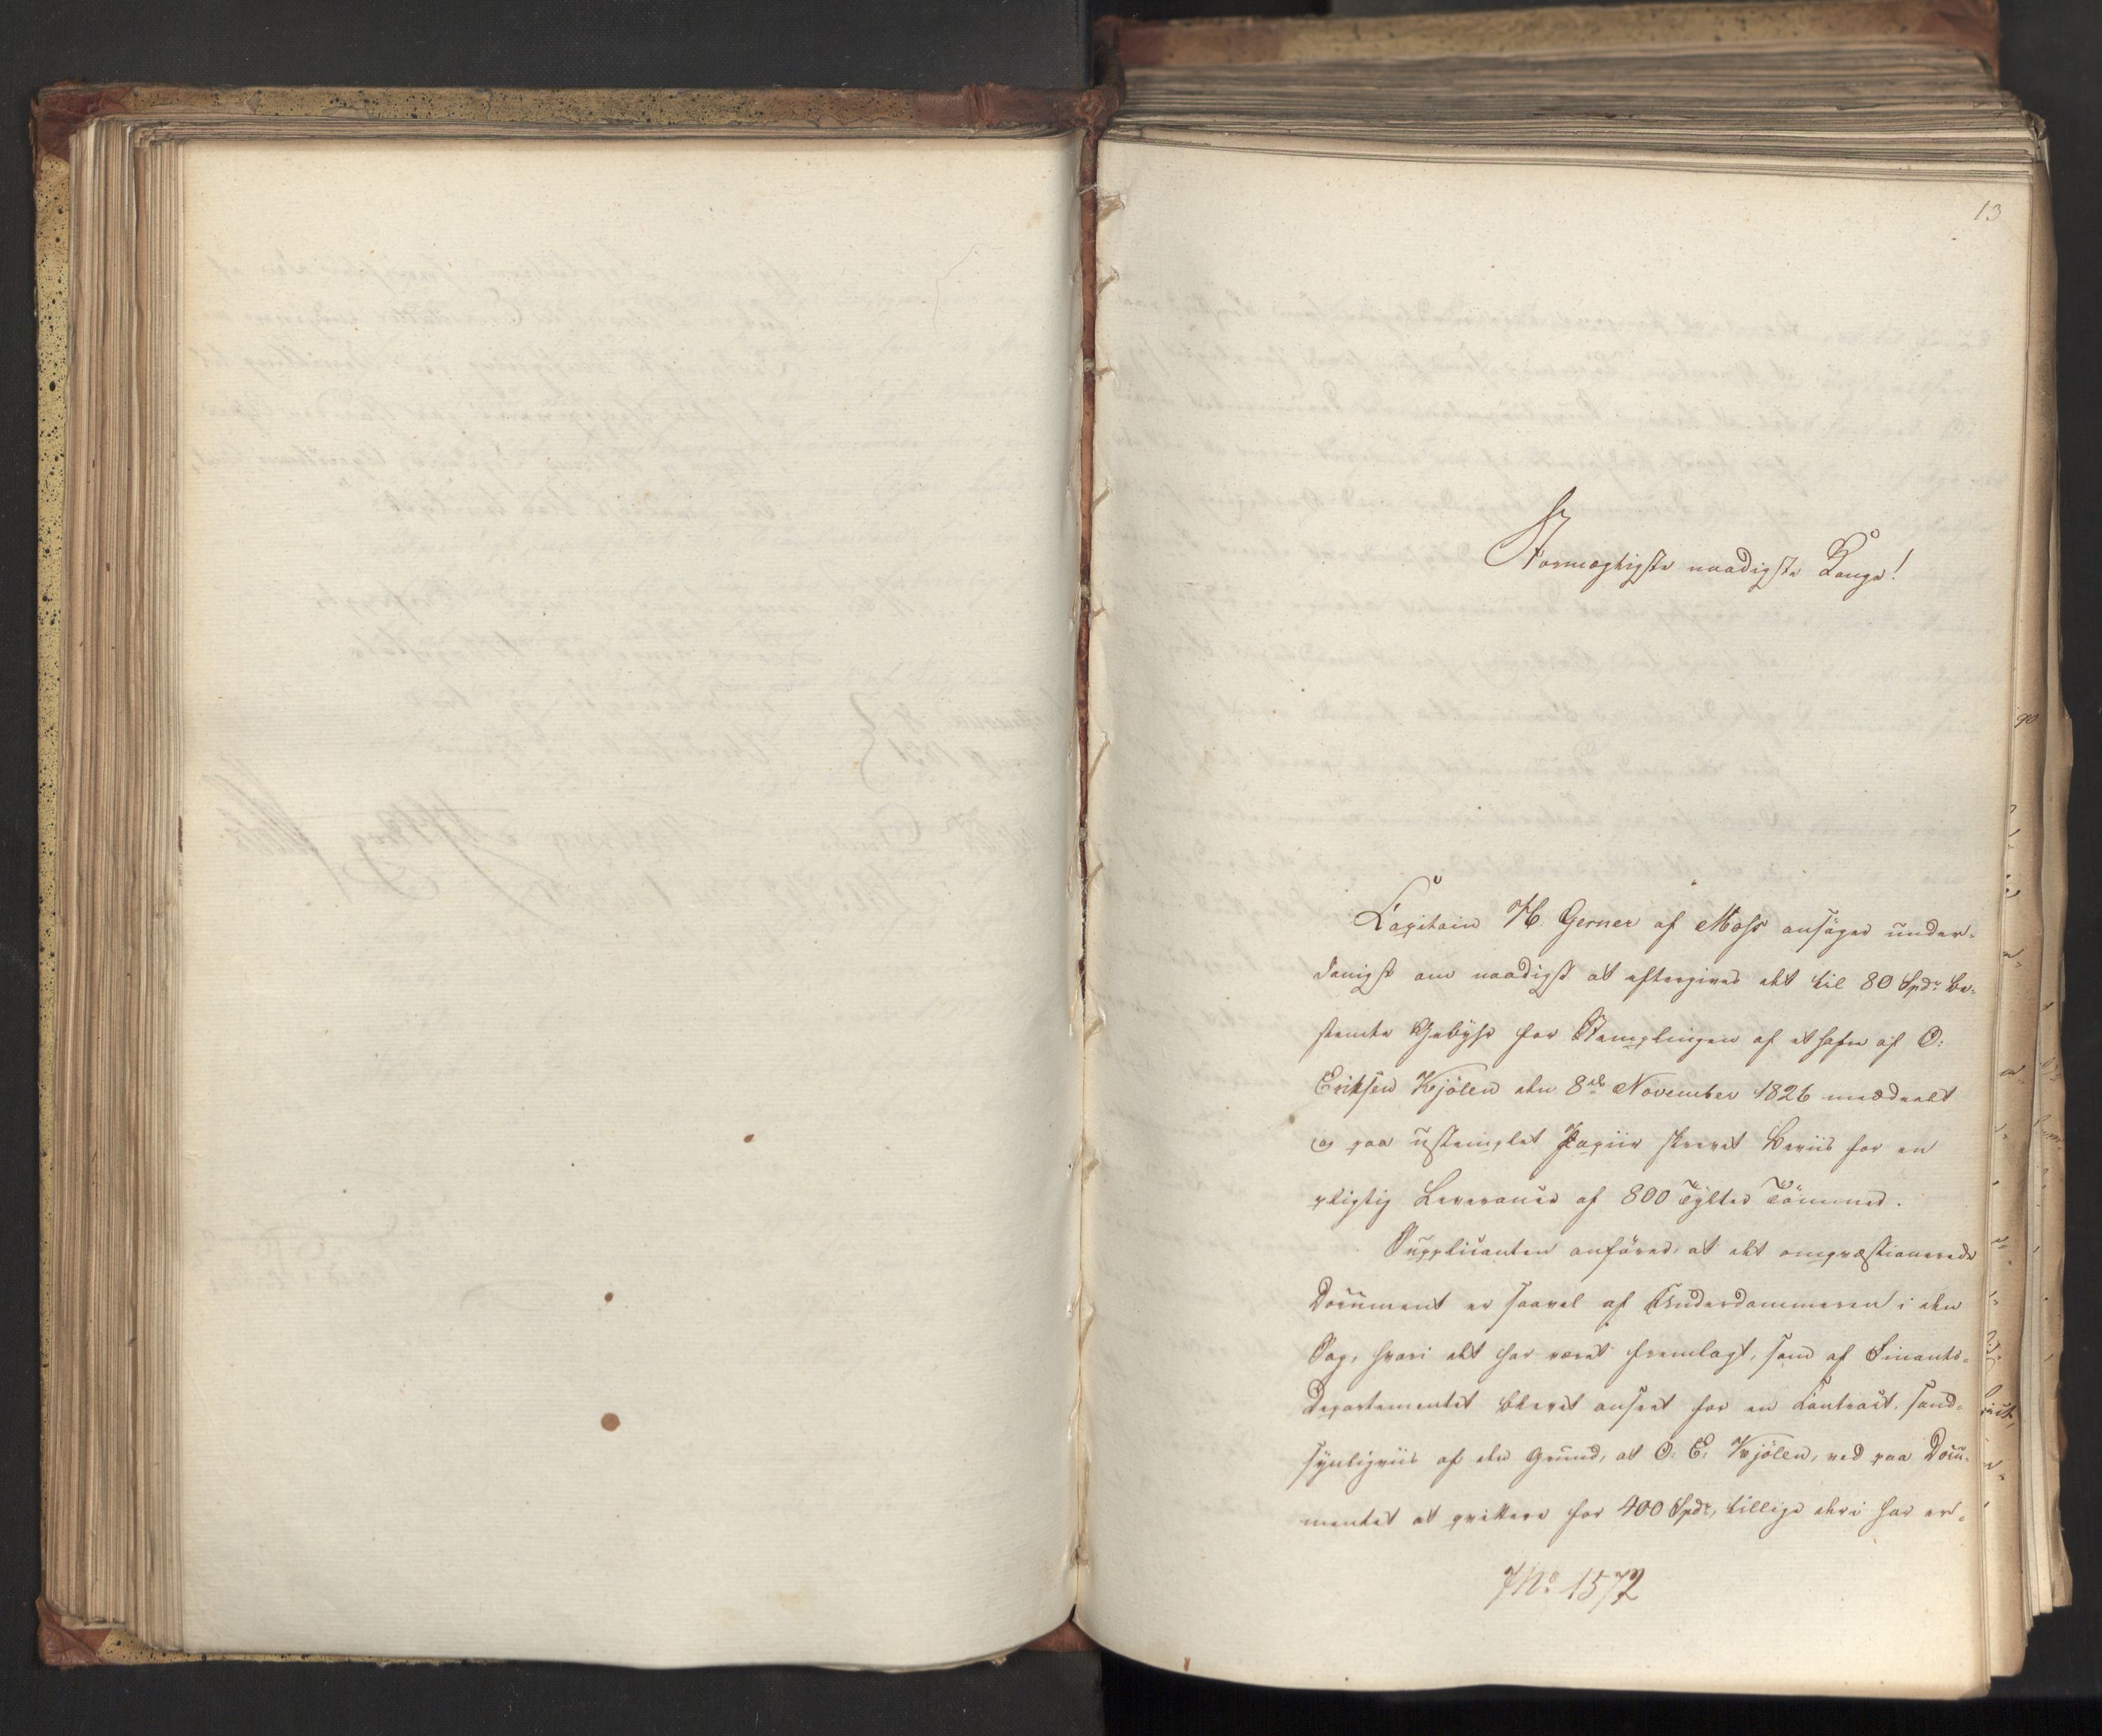 13
Stormægtigste naadigste Konge!
Capitain H. Gerner af Moss ansøger under-
danigst om naadigst at eftergives det til 80 Spdr be-
stemte Gebyhr for Stemplingen af et hafn af O:
Eriksen Kjölen den 8de November 1826 meddeelt
og paa ustemplet Papiir skrevet Beviis for en
pligtig Leverance af 800 Tylter Tömmer.
Supplicanten anförer, at det omqvæstionerede
Document er saavel af Underdommeren i den
Sag, hvori det har været fremlagt, som af Finants-
Departementet blevet anseet for en Contract, sand-
synligviis af den Grund, at O: E: Kjölen, ved paa Docu-
mentet at qvittere for 400 Spdr, tillige deri har er-
No 1572